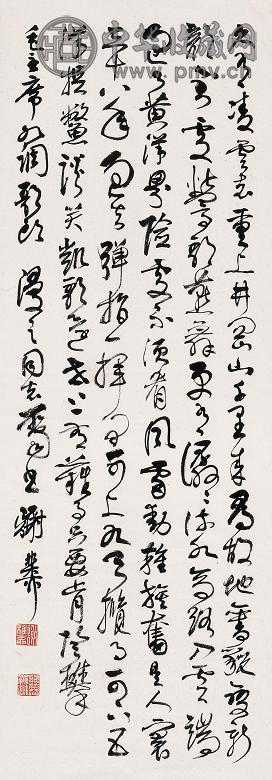 中华收藏网
www.pmv.cn
久有凌云志重上井冈山千里来寻故地旧貌变新
颜到处莺歌燕舞更有潺潺流水高路入云端
过了黄洋界险处不须看风雷动旌旗奋是人寰
三十八年过去弹指一挥间可上九天揽月可下五
洋捉鳖谈笑凯歌还世上无难事只要肯登攀
毛主席水调歌头 漫之同志属书 谢稚柳